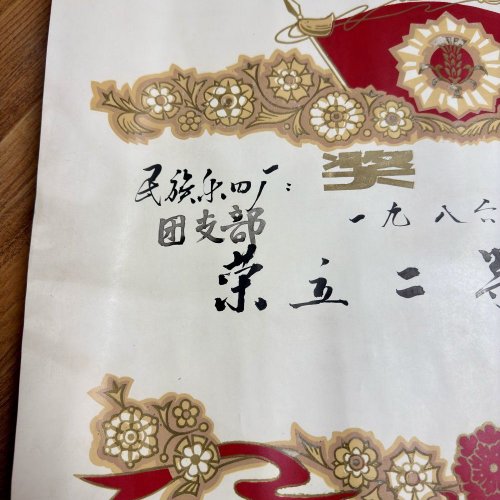 奖
民族乐四厂：
团支部
一九八六
荣立二等